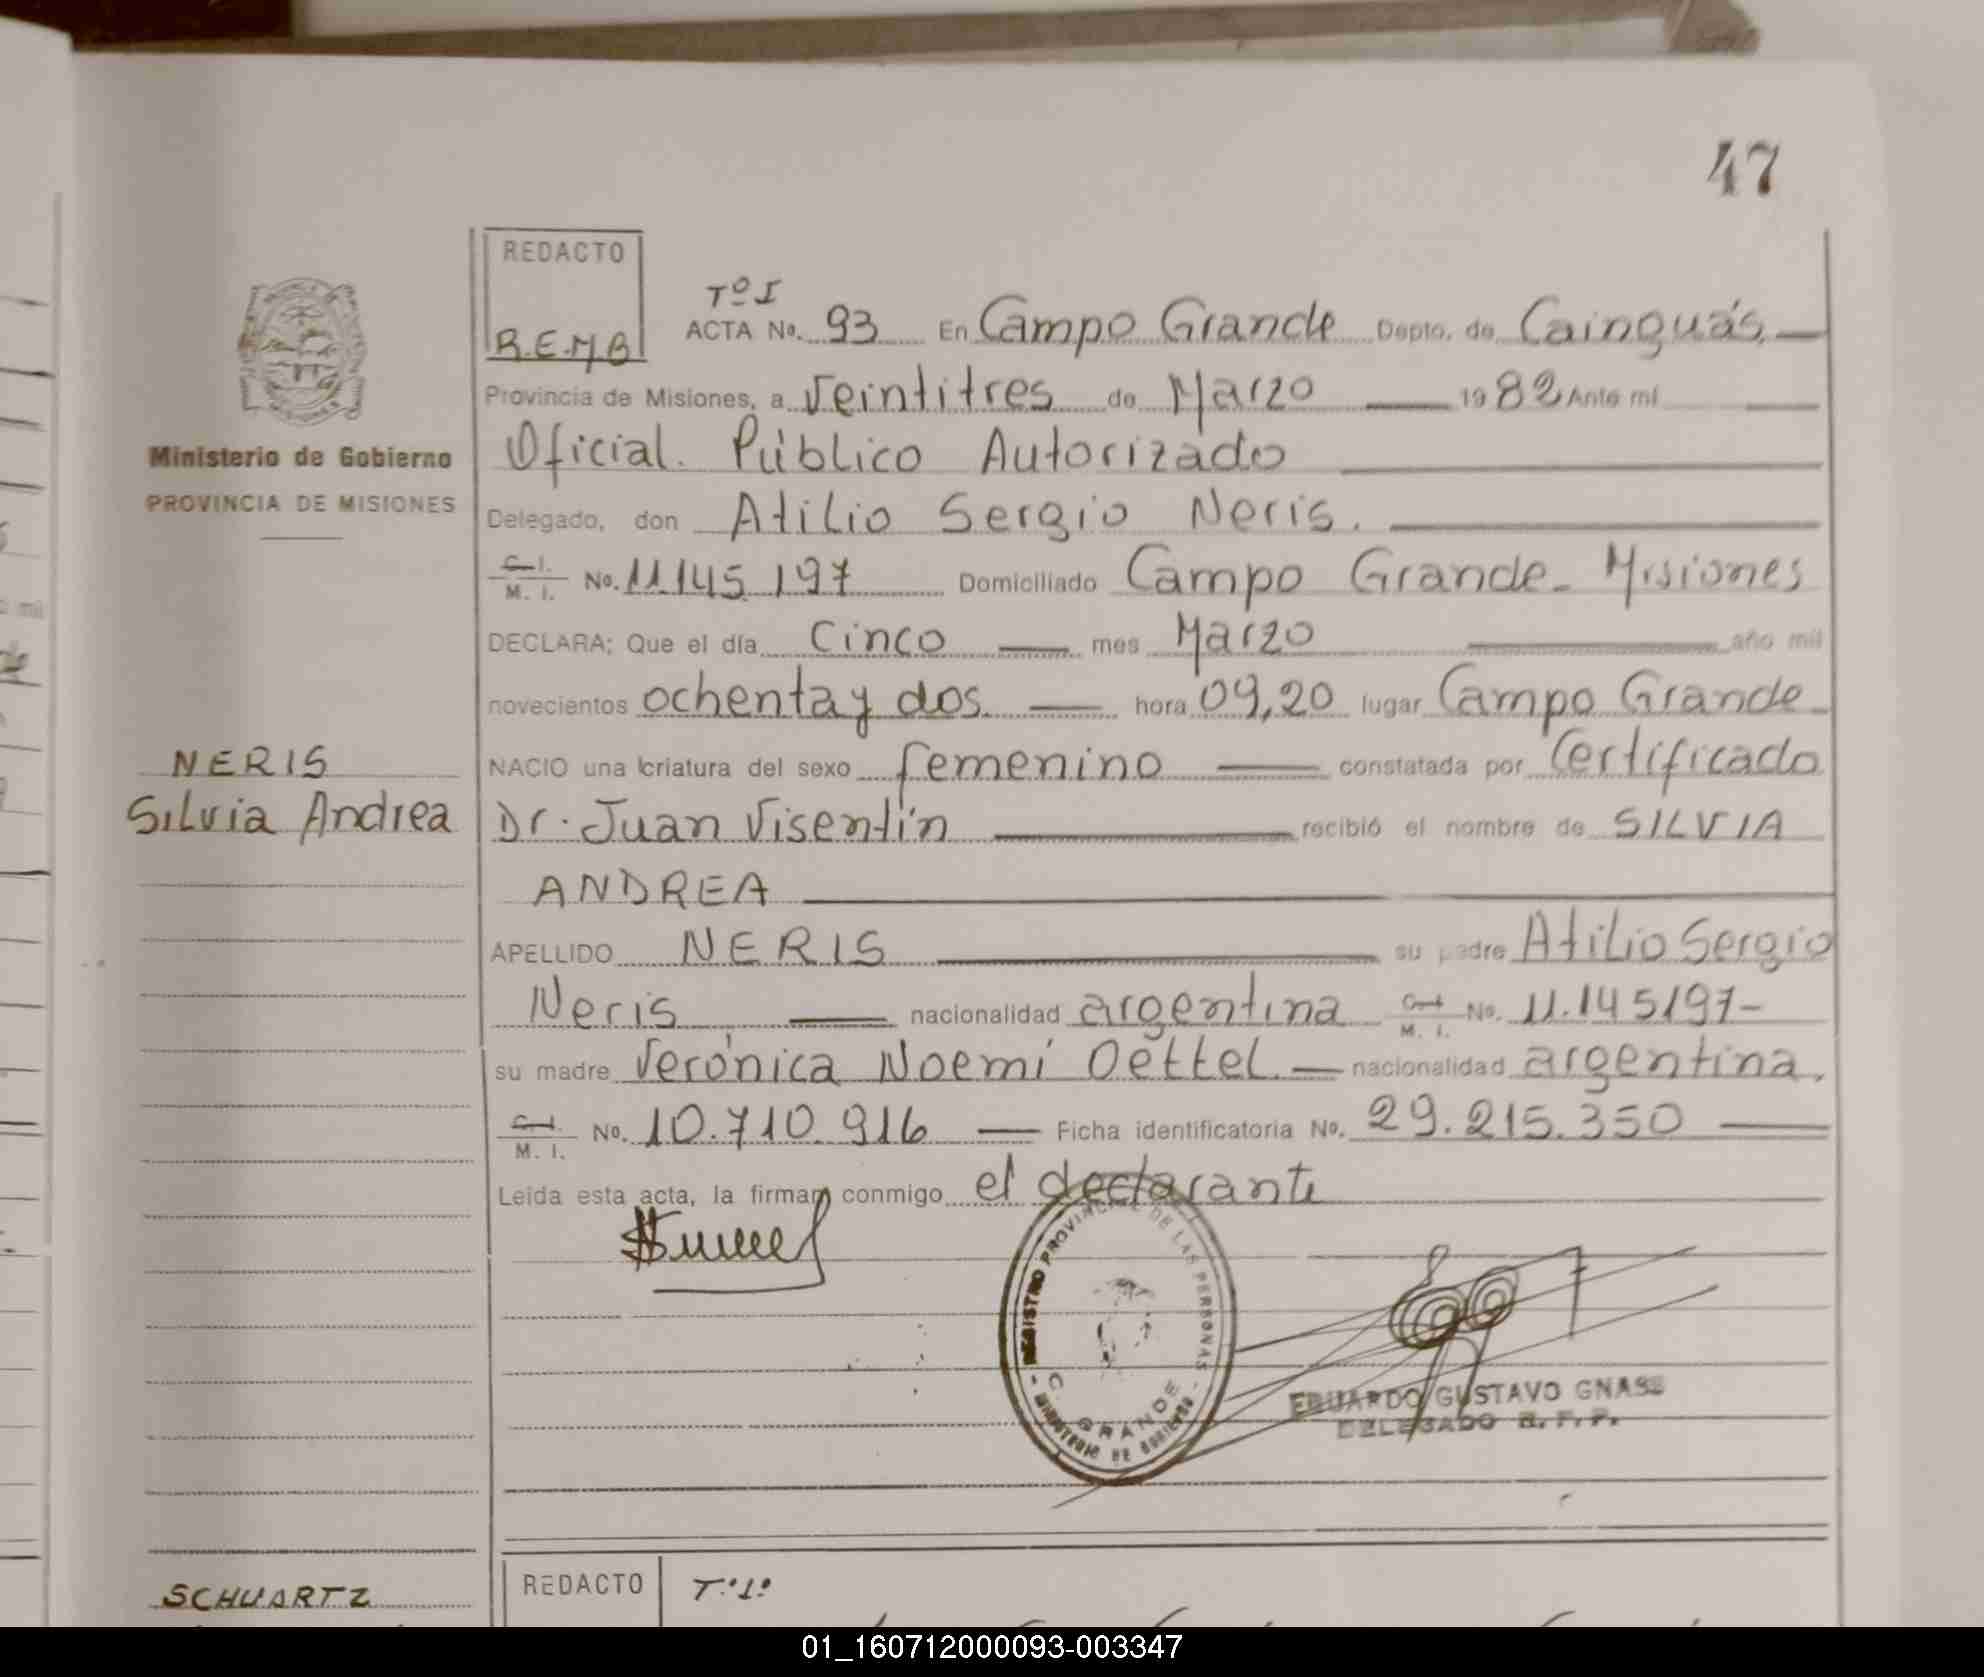 47
REDACTO
R.E.M.B
Tº I
ACTA No. 93 En Campo Grande Depto. de Cainguás,
Provincia de Misiones, a Veintitres de Marzo 1982 Ante mí
Oficial. Público Autorizado
Delegado, don Atilio Sergio Neris.
C. I. M. I. No. 11.145.197 Domiciliado Campo Grande - Misiones
DECLARA; Que el día Cinco mes Marzo año mil
novecientos ochenta y dos hora 09,20 lugar Campo Grande
NACIO una criatura del sexo femenino constatada por Certificado
Dr. Juan Visentín recibió el nombre de SILVIA
ANDREA
APELLIDO NERIS su padre Atilio Sergio
Neris nacionalidad argentina C. I. M. I. No. 11.145197-
su madre Verónica Noemí Oettel. nacionalidad argentina.
C. I. M. I. No. 10.710.916 Ficha identificatoria No. 29.215.350
Leida esta acta, la firman conmigo el declarante
REGISTRO PROVINCIAL DE LAS PERSONAS
C. GRANDE
- MINISTERIO DE GOBIERNO -
EDUARDO GUSTAVO GNASS
DELEGADO R. P. P.
Ministerio de Gobierno
PROVINCIA DE MISIONES
NERIS
Silvia Andrea
SCHUARTZ
REDACTO
T.º1º
01_160712000093-003347